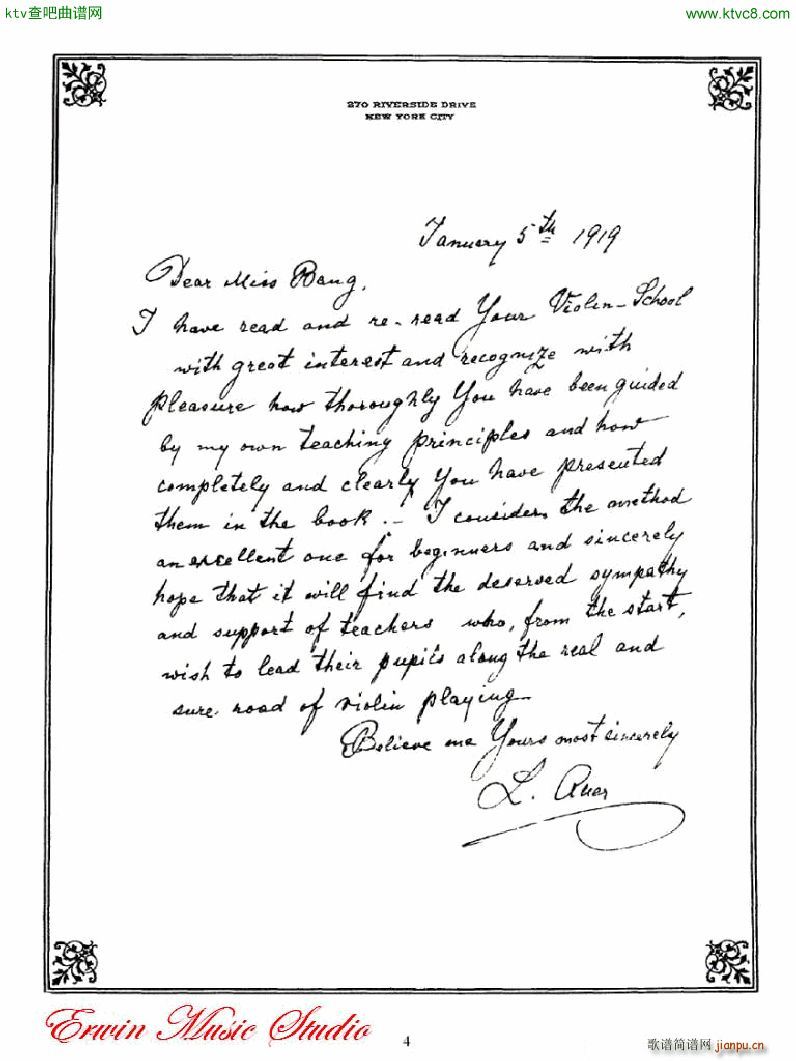 ktv查吧曲谱网
www.ktvc8.com
270 RIVERSIDE DRIVE
NEW YORK CITY
January 5th 1919
Dear Miss Bang,
I have read and re-read Your Violin-School
with great interest and recognize with
pleasure how thoroughly You have been guided
by my own teaching principles and how
completely and clearly You have presented
them in the book. – I consider the method
an excellent one for beginners and sincerely
hope that it will find the deserved sympathy
and support of teachers who, from the start,
wish to lead their pupils along the real and
sure road of violin playing
Believe me Yours most sincerely
L. Auer
Erwin Music Studio
4
歌谱简谱网 jianpu.cn